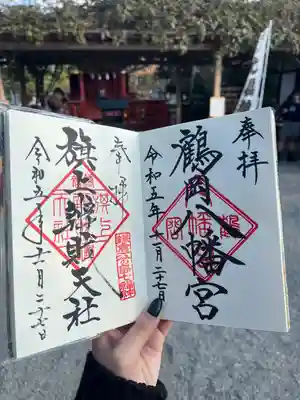 奉拝
鶴岡八幡宮
令和五年十一月二十七日
奉拝
旗上辯財天社
令和五年十一月二十七日